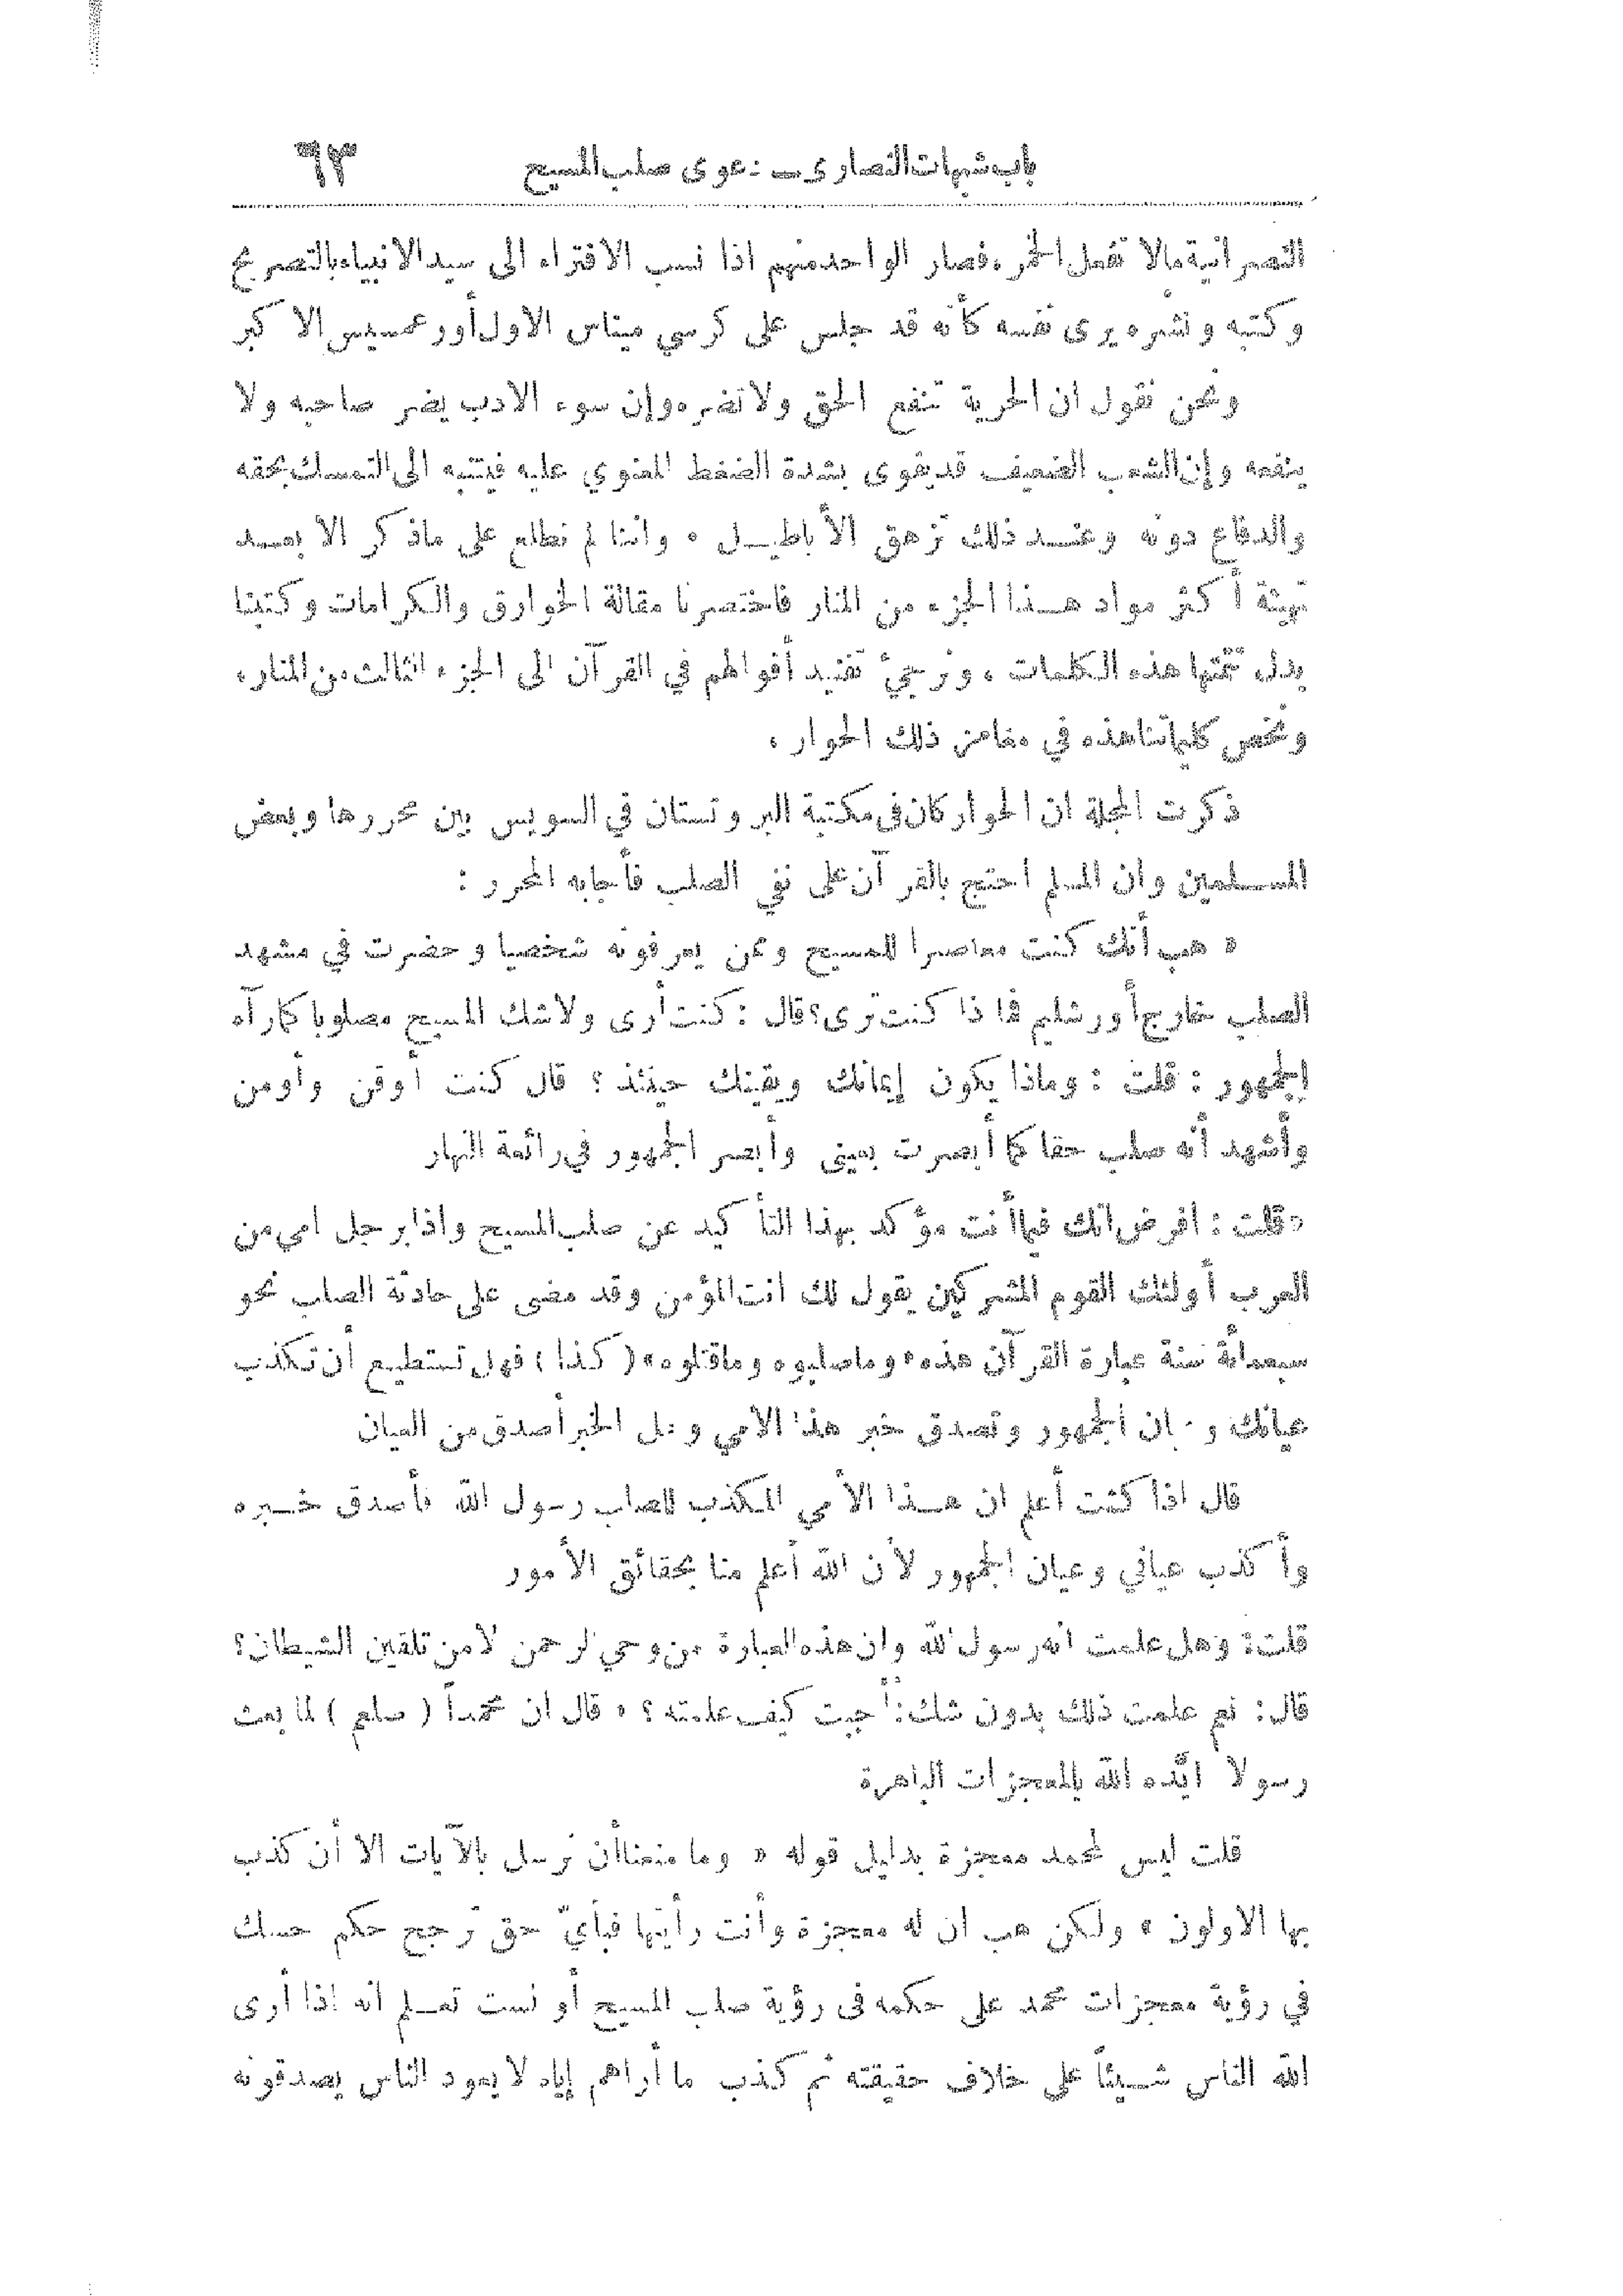 باب شبهات النصارى ــ دعوى صلب المسيح ٦٣
النصرانية مالا تفعل الخمر ، فصار الواحد منهم اذا نسب الافتراء الى سيد الانبياء بالتصريح
وكتبه ونشره يرى نفسه كأنه قد جلس على كرسي ميناس الاول أو رعمسيس الاكبر
ونحن نقول ان الحرية تنفع الحق ولا تضره وإن سوء الادب يضر صاحبه ولا
ينفعه وإن الشعب الضعيف قد يقوى بشدة الضغط المعنوي عليه فيتنبه الى التمسك بحقه
والدفاع دونه وعنـد ذلك تزهق الأباطيـل ٠ واننا لم نطلع على ماذكر الا بعـد
تهيئة أكثر مواد هـذا الجزء من المنار فاختصرنا مقالة الخوارق والكرامات وكتبنا
بدل تتمتها هذه الكلمات ، ونرجئ تفنيد أقوالهم في القرآن الى الجزء الثالث من المنار ،
ونخص كلماتنا هذه في مغامز ذلك الحوار ،
ذكرت المجلة ان الحوار كان فى مكتبة البروتستان في السويس بين محررها وبعض
المسـلمين وان المسلم احتج بالقرآن على نفي الصلب فأجابه المحرر :
« هب أنك كنت معاصرا للمسيح وممن يعرفونه شخصيا وحضرت في مشهد
الصلب خارج أورشليم فماذا كنت ترى؟ قال : كنت أرى ولاشك المسيح مصلوبا كما رآه
الجمهور : قلت : وماذا يكون إيمانك ويقينك حينئذ ؟ قال كنت أوقن وأومن
وأشهد أنه صلب حقا كما أبصرت بعينى وأبصر الجمهور في رائعة النهار
«قلت : افرض انك فيما أنت مؤكد بهذا التأكيد عن صلب المسيح واذا برجل امي من
العرب أولئك القوم المشركين يقول لك انت المؤمن وقد مضى على حادثة الصلب نحو
سبعمائة سنة عبارة القرآن هذه «وماصلبوه وماقتلوه» (كذا) فهل تستطيع أن تكذب
عيانك وعيان الجمهور وتصدق خبر هذا الامي وهل الخبر أصدق من العيان
قال اذا كنت أعلم ان هـذا الأمي المكذب للصلب رسول الله فأصدق خـبره
وأكذب عياني وعيان الجمهور لأن الله أعلم منا بحقائق الأمور
قلت: وهل علمت انه رسول الله وان هذه العبارة من وحي الرحمن لا من تلقين الشيطان؟
قال: نعم علمت ذلك بدون شك: أجبت كيف علمته ؟ ٠ قال ان محمداً (صلعم) لما بعث
رسولا ايَّده الله بالمعجزات الباهرة
قلت ليس لمحمد معجزة بدليل قوله « وما منعنا أن نرسل بالآيات الا أن كذب
بها الاولون » ولكن هب ان له معجزة وأنت رأيتها فبأيّ حق ترجح حكم حسك
في رؤية معجزات محمد على حكمه فى رؤية صلب المسيح أو لست تعـلم انه اذا أرى
الله الناس شـيئاً على خلاف حقيقته ثم كذب ما أراهم إياه لا يعود الناس يصدقونه